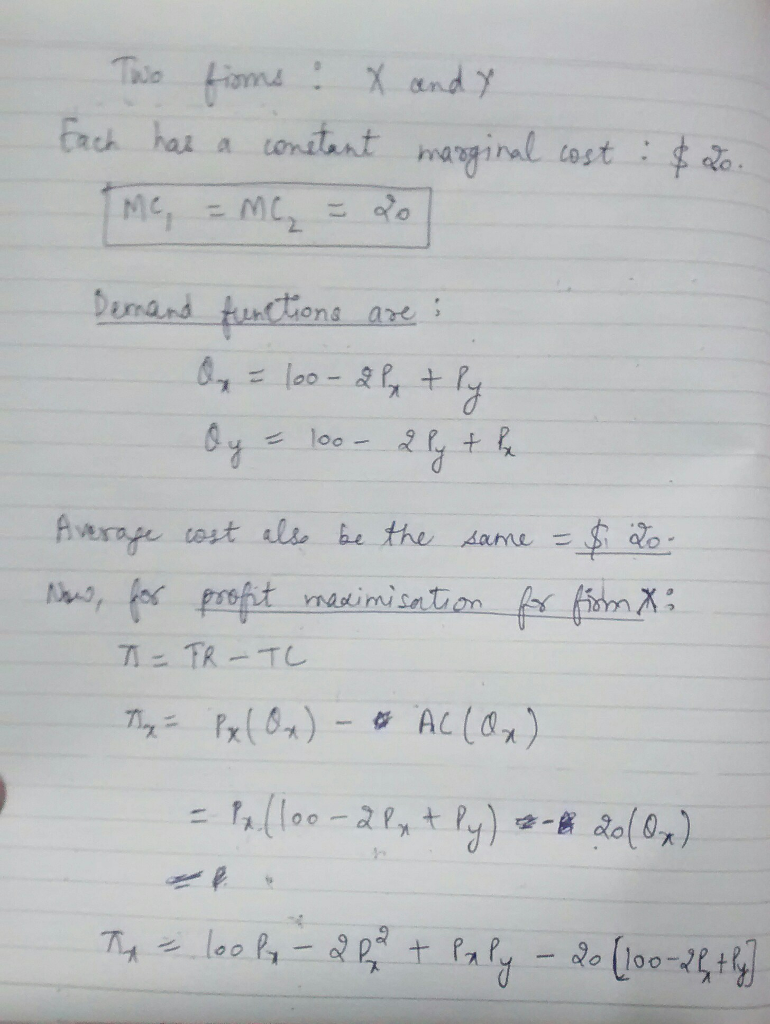 Two firms : X and Y
Each has a constant marginal cost : $ 20.
MC₁ = MC₂ = 20
Demand functions are :
Qx = 100 - 2Px + Py
Qy = 100 - 2Py + Px
Average cost also be the same = $ 20.
Now, for profit maximisation for firm X :
π = TR - TC
πx = Px(Qx) - AC(Qx)
= Px(100 - 2Px + Py) - 20(Qx)
πx = 100Px - 2Px² + PxPy - 20[100 - 2Px + Py]